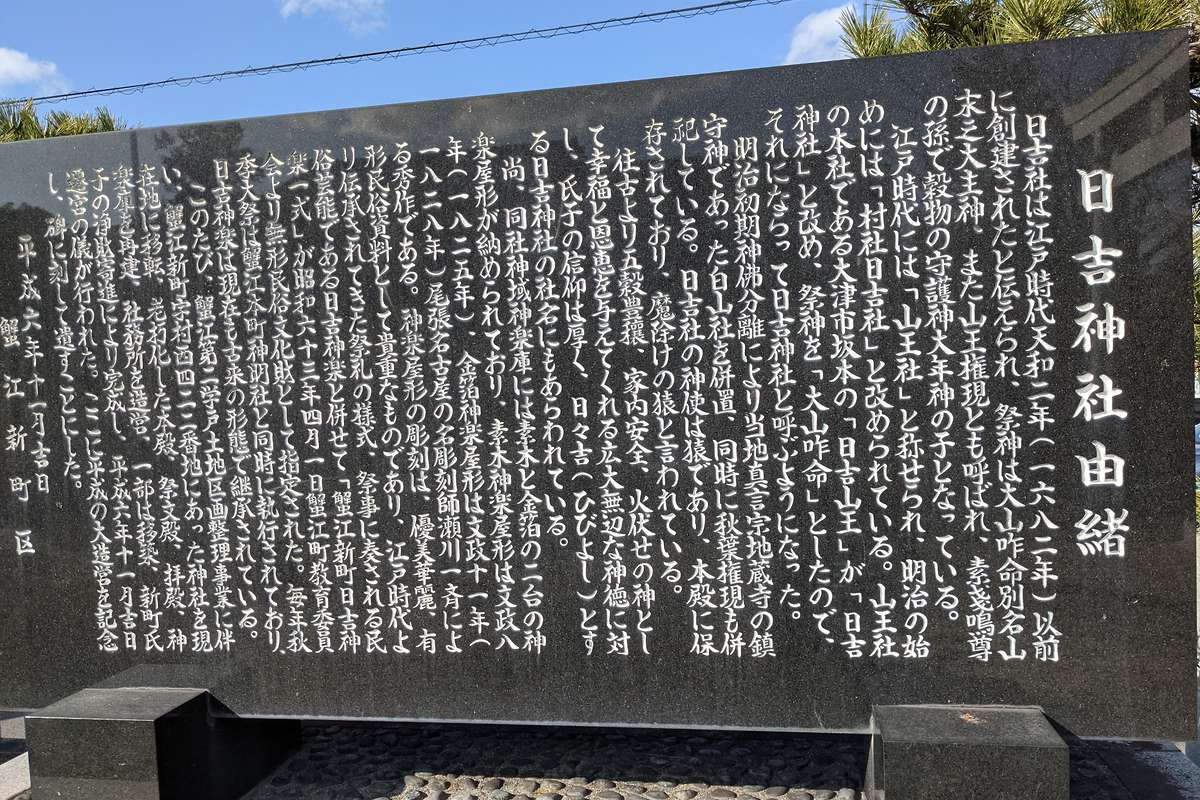 日吉神社由緒
日吉社は江戸時代天和二年(一六八二年)以前
に創建されたと伝えられ、祭神は大山咋命別名山
末之大主神、また山王権現とも呼ばれ、素戔鳴尊
の孫で穀物の守護神大年神の子となっている。
江戸時代には、「山王社」と称せられ、明治の始
めには「村社日吉社」と改められている。山王社
の本社である大津市坂本の「日吉山王」が「日吉
神社」と改め、祭神を「大山咋命」としたので、
それにならって日吉神社と呼ぶようになった。
明治初期神佛分離により当地真言宗地蔵寺の鎮
守神であった白山社を併置、同時に秋葉権現も併
祀している。日吉社の神使は猿であり、本殿に保
存されており、魔除けの猿と言われている。
往古より五穀豊穣、家内安全、火伏せの神とし
て幸福と恩恵を与えてくれる広大無辺な神徳に対
し、氏子の信仰は厚く、日々吉(ひびよし)とす
る日吉神社の社名にもあらわれている。
尚、同社神域神楽庫には素木と金箔の二台の神
楽屋形が納められており、素木神楽屋形は文政八
年(一八二五年)、金箔神楽屋形は文政十一年(
一八二八年)尾張名古屋の名彫刻師瀬川一斉によ
る秀作である。神楽屋形の彫刻は、優美華麗、有
形民俗資料として貴重なものであり、江戸時代よ
り伝承されてきた祭礼の様式、祭事に奏される民
俗芸能である日吉神楽と併せて「蟹江新町日吉神
楽一式」が昭和六十三年四月一日蟹江町教育委員
会より無形民俗文化財として指定された。毎年秋
季大祭は蟹江本町神明社と同時に執行されており、
日吉神楽は現在も古来の形態で継承されている。
このたび、蟹江第二学戸土地区画整理事業に伴
い、蟹江新町字村西四二二番地にあった神社を現
在地に移転、老朽化した本殿、祭文殿、拝殿、神
楽庫を再建、社務所を造営、一部は移築、新町氏
子の浄財寄進により完成し、平成六年十一月吉日
遷宮の儀が行われた。ここに平成の大造営を記念
し、碑に刻して遺すことにした。
平成六年十一月吉日
蟹江新町区